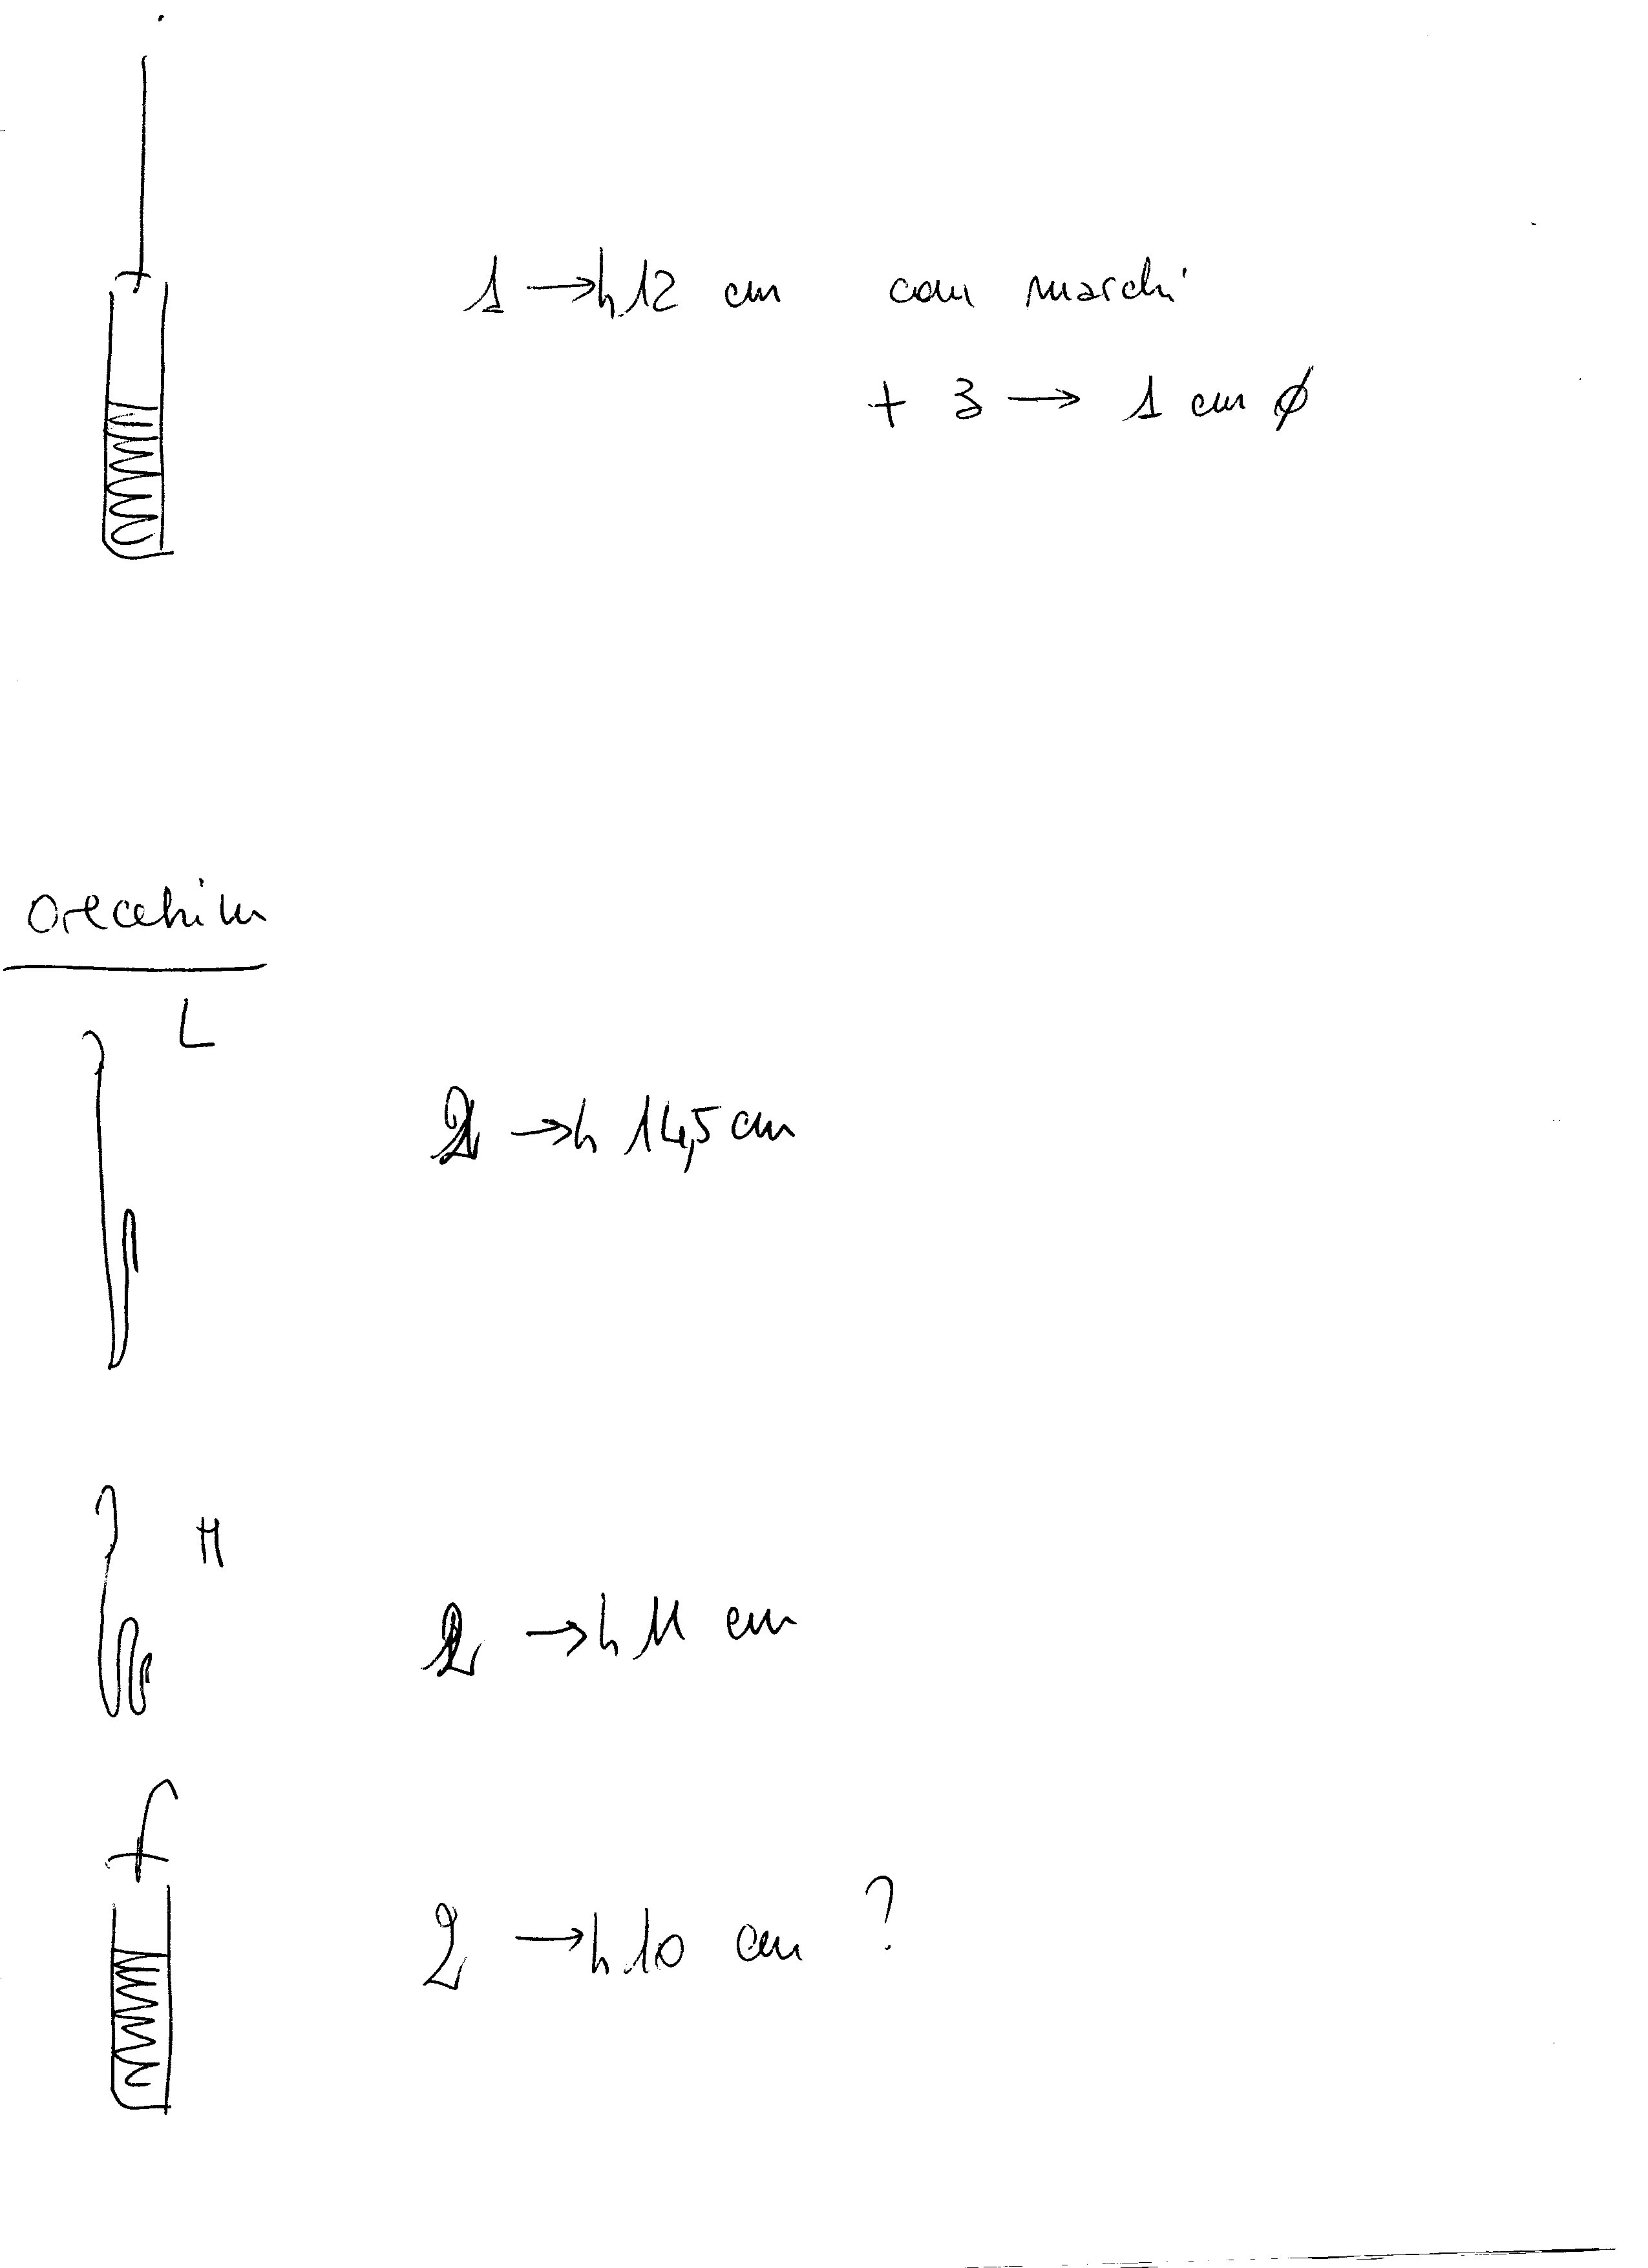 1 → h 12 cm con marchi
+ 3 → 1 cm ø
Orecchini
L
2 → h 14,5 cm
M
2 → h 11 cm
2 → h 10 cm ?